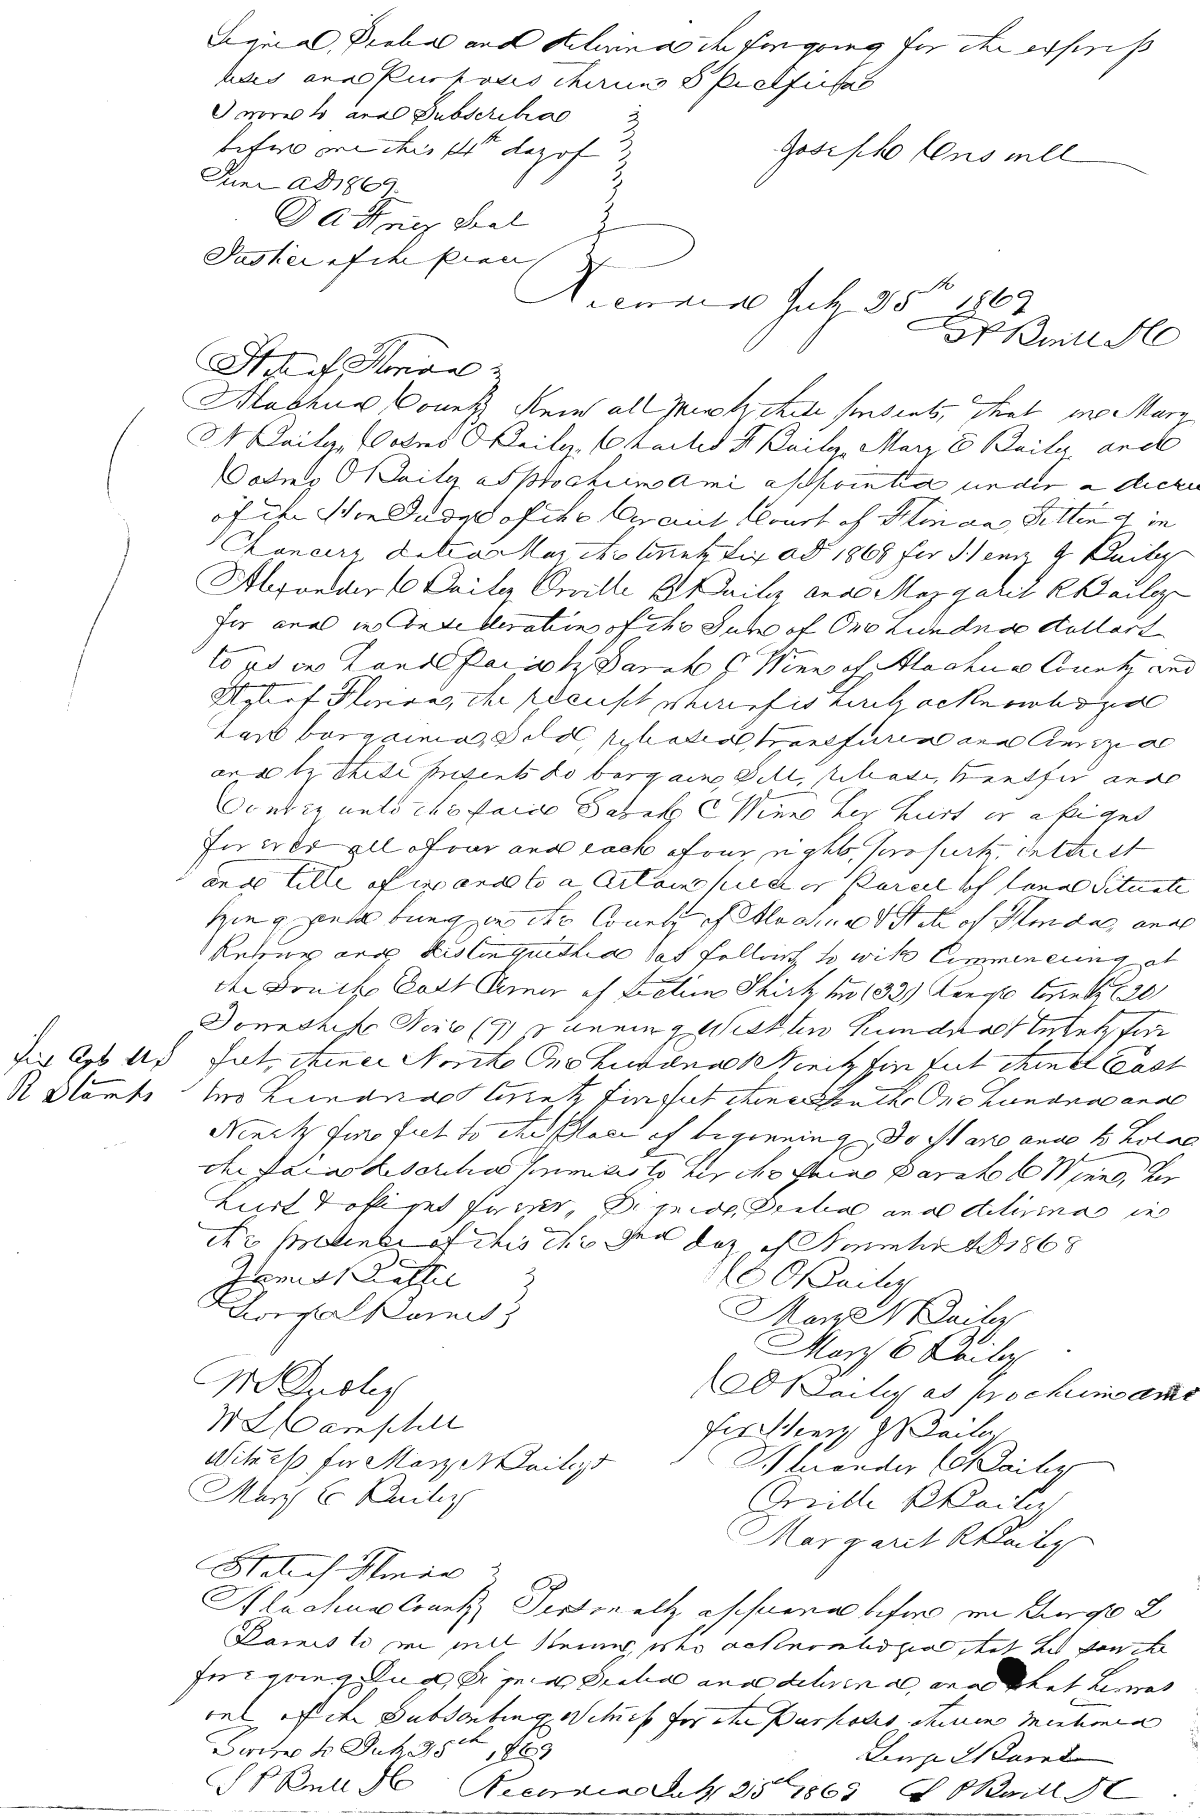 Signed, Sealed and delivered the foregoing for the express
uses and Purposes therein Specified
Sworn to and Subscribed
before me this 14th day of
June AD 1869.
Joseph
Seal
Justice of the peace
Recorded July 25th 1869
State of Florida
Alachua County Know all men by these presents, that we Mary
N Bailey, Cosmo O Bailey, Charles F Bailey, Mary E Bailey and
Cosmo O Bailey as prochein ami appointed under a decree
of the Hon Judge of the Circuit Court of Florida, Sitting in
Chancery dated May the twenty six AD 1868 for Henry J Bailey
Alexander C Bailey Orville B Bailey and Margaret R Bailey
for and in Consideration of the Sum of One hundred dollars
to us in hand paid by Sarah C Winn of Alachua County and
State of Florida, the receipt whereof is hereby acknowledged
have bargained, Sold, released, transfured and Conveyed
and by these presents do bargain, Sell, release, transfer and
Convey unto the said Sarah C Winn her heirs or assigns
forever all of our and each of our rights, property, interest
and title of in and to a Certain piece or Parcel of land Situate
lying and being in the County of Alachua & State of Florida, and
Known and distinguished as follows to wit Commencing at
the South East Corner of Section Thirty two (32) Range twenty (20)
Township Nine (9) running West two hundred & twenty five
feet, thence North One hundred & Ninety five feet thence East
two hundred & twenty five feet thence South One hundred and
Ninety five feet to the place of beginning, To Have and to hold
the said described premises to her the said Sarah C Winn, her
heirs & assigns forever, Signed, Sealed and delivered in
the presence of this the 2nd day of November AD 1868
R Stamps
James
George L Barnes
C O Bailey
Mary N Bailey
Mary E Bailey
W S Dudley
W L Campbell
Witness for Mary N Bailey &
Mary E Bailey
C O Bailey as prochein ami
for Henry J Bailey
Alexander C Bailey
Orville B Bailey
Margaret R Bailey
State of Florida
Alachua County Personally appeared before me George L
Barnes to me well Known, who acknowledged that he saw the
foregoing Deed, Signed, Sealed and delivered, and that he was
one of the Subscribing Witness for the Purposes therein mentioned
Sworn to July 25th, 1869
George L Barnes
Recorded July 25th 1869